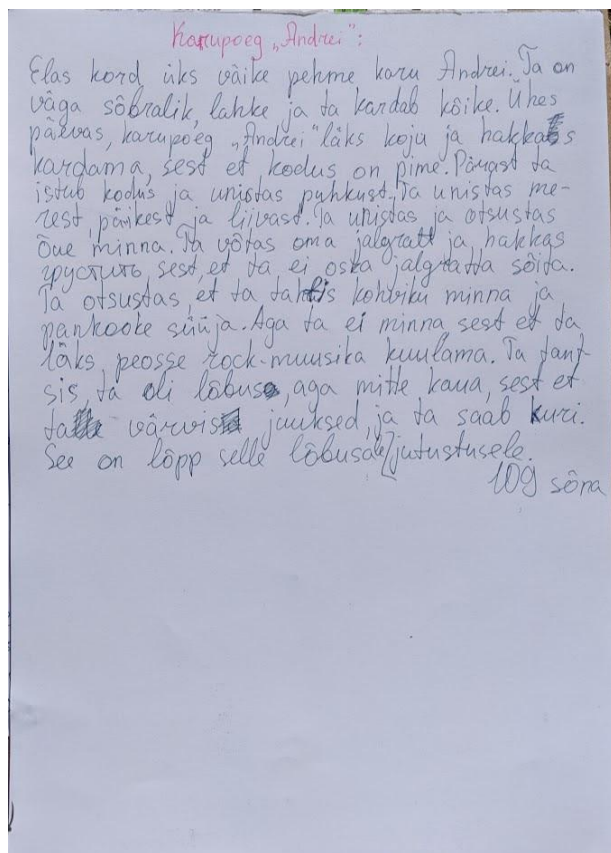 Karupoeg „Andrei“:
Elas kord üks väike pehme karu Andrei. Ta on
väga sõbralik, lahke ja ta kardab kõike. Ühes
päevas, karupoeg „Andrei“ läks koju ja hakkas
kardama, sest et kodus on pime. Pärast ta
istub kodus ja unistas puhkust. Ta unistas me-
rest, päikest ja liivast. Ta unistas ja otsustas
Õue minna. Ta võtas oma jalgratt ja hakkas
грустить, sest, et ta ei oska jalgratta sõita.
Ta otsustas, et ta tahtis kohviku minna ja
pankooke süüja. Aga ta ei minna, sest et ta
läks peosse rock-muusika kuulama. Ta tant-
sis, ta oli lõbus, aga mitte kaua, sest et
ta värvis juuksed, ja ta saab kuri.
See on lõpp selle lõbusale jutustusele.
109 sõna